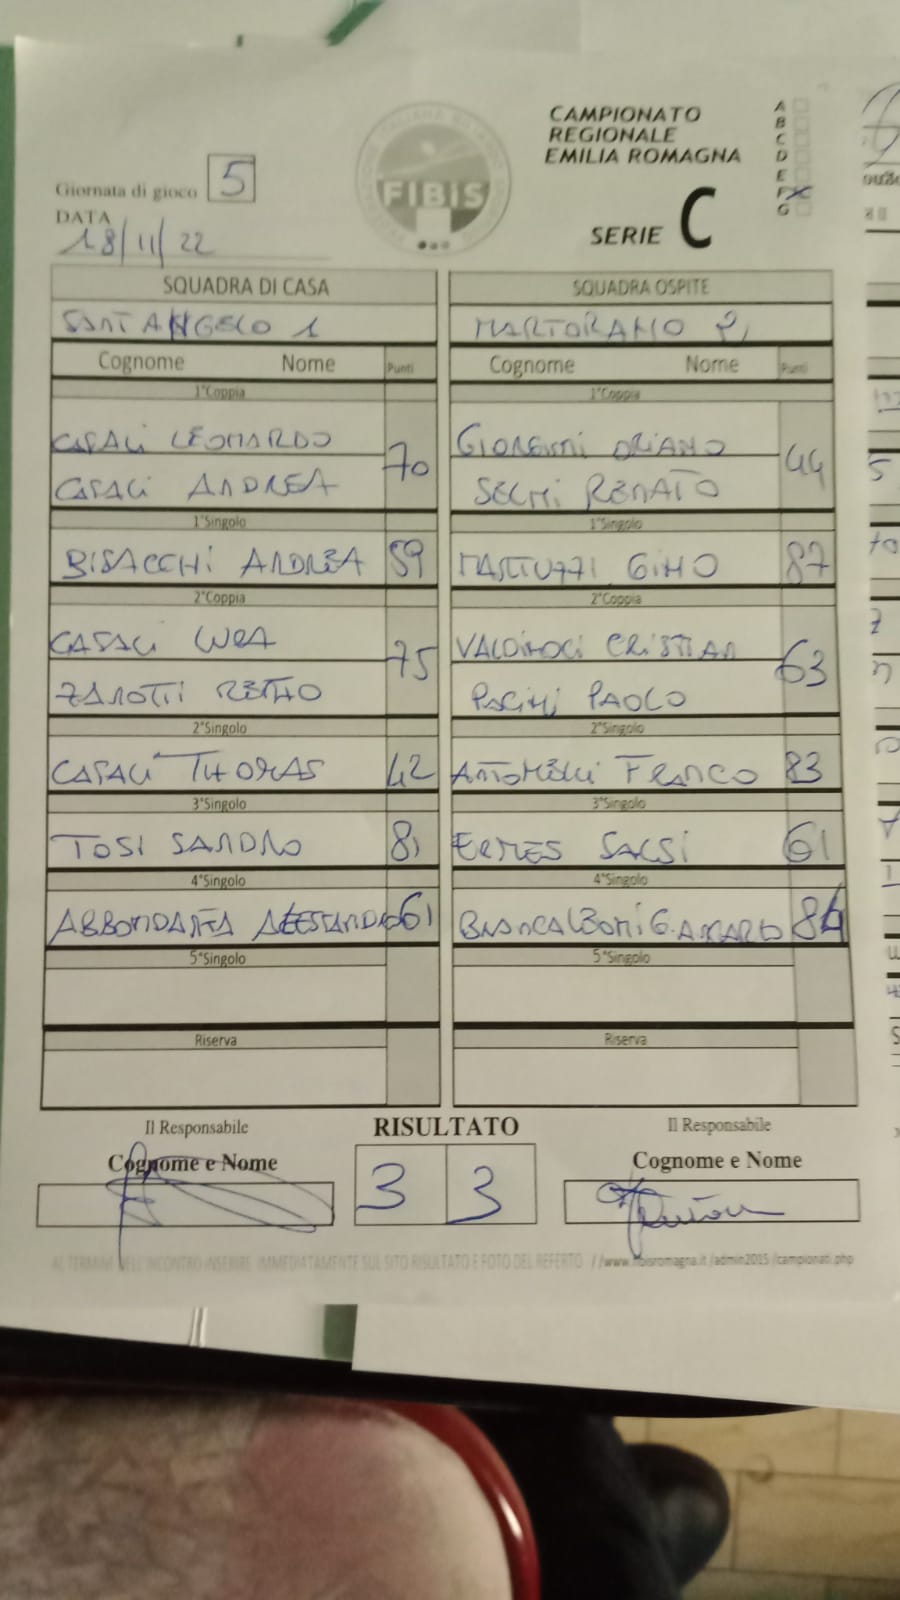 CAMPIONATO
REGIONALE
EMILIA ROMAGNA
SERIE C
A
B
C
D
E
F X
G
FIBiS
Giornata di gioco 5
DATA
18/11/22
SQUADRA DI CASA
SANT ANGELO 1
Cognome Nome Punti
1°Coppia
CASALI LEONARDO
CASALI ANDREA
70
1°Singolo
BISACCHI ANDREA 59
2°Coppia
CASALI LUCA
ZANOTTI
75
2°Singolo
CASALI THOMAS 42
3°Singolo
TOSI SANDRO 81
4°Singolo
ABBONDANZA ALESSANDRO 61
5°Singolo
Riserva
SQUADRA OSPITE
MARTORANO 2
Cognome Nome Punti
1°Coppia
ORIANO
SELMI RENATO
44
1°Singolo
MARTUZZI GINO 87
2°Coppia
VALDINOCI CRISTIAN
PACINI PAOLO
63
2°Singolo
FRANCO 83
3°Singolo
ERMES SALSI 61
4°Singolo
84
5°Singolo
Riserva
Il Responsabile
Cognome e Nome
RISULTATO
3 3
Il Responsabile
Cognome e Nome
AL TERMINE DELL'INCONTRO INSERIRE IMMEDIATAMENTE SUL SITO RISULTATO E FOTO DEL REFERTO //www.fibisromagna.it/admin2015/campionati.php